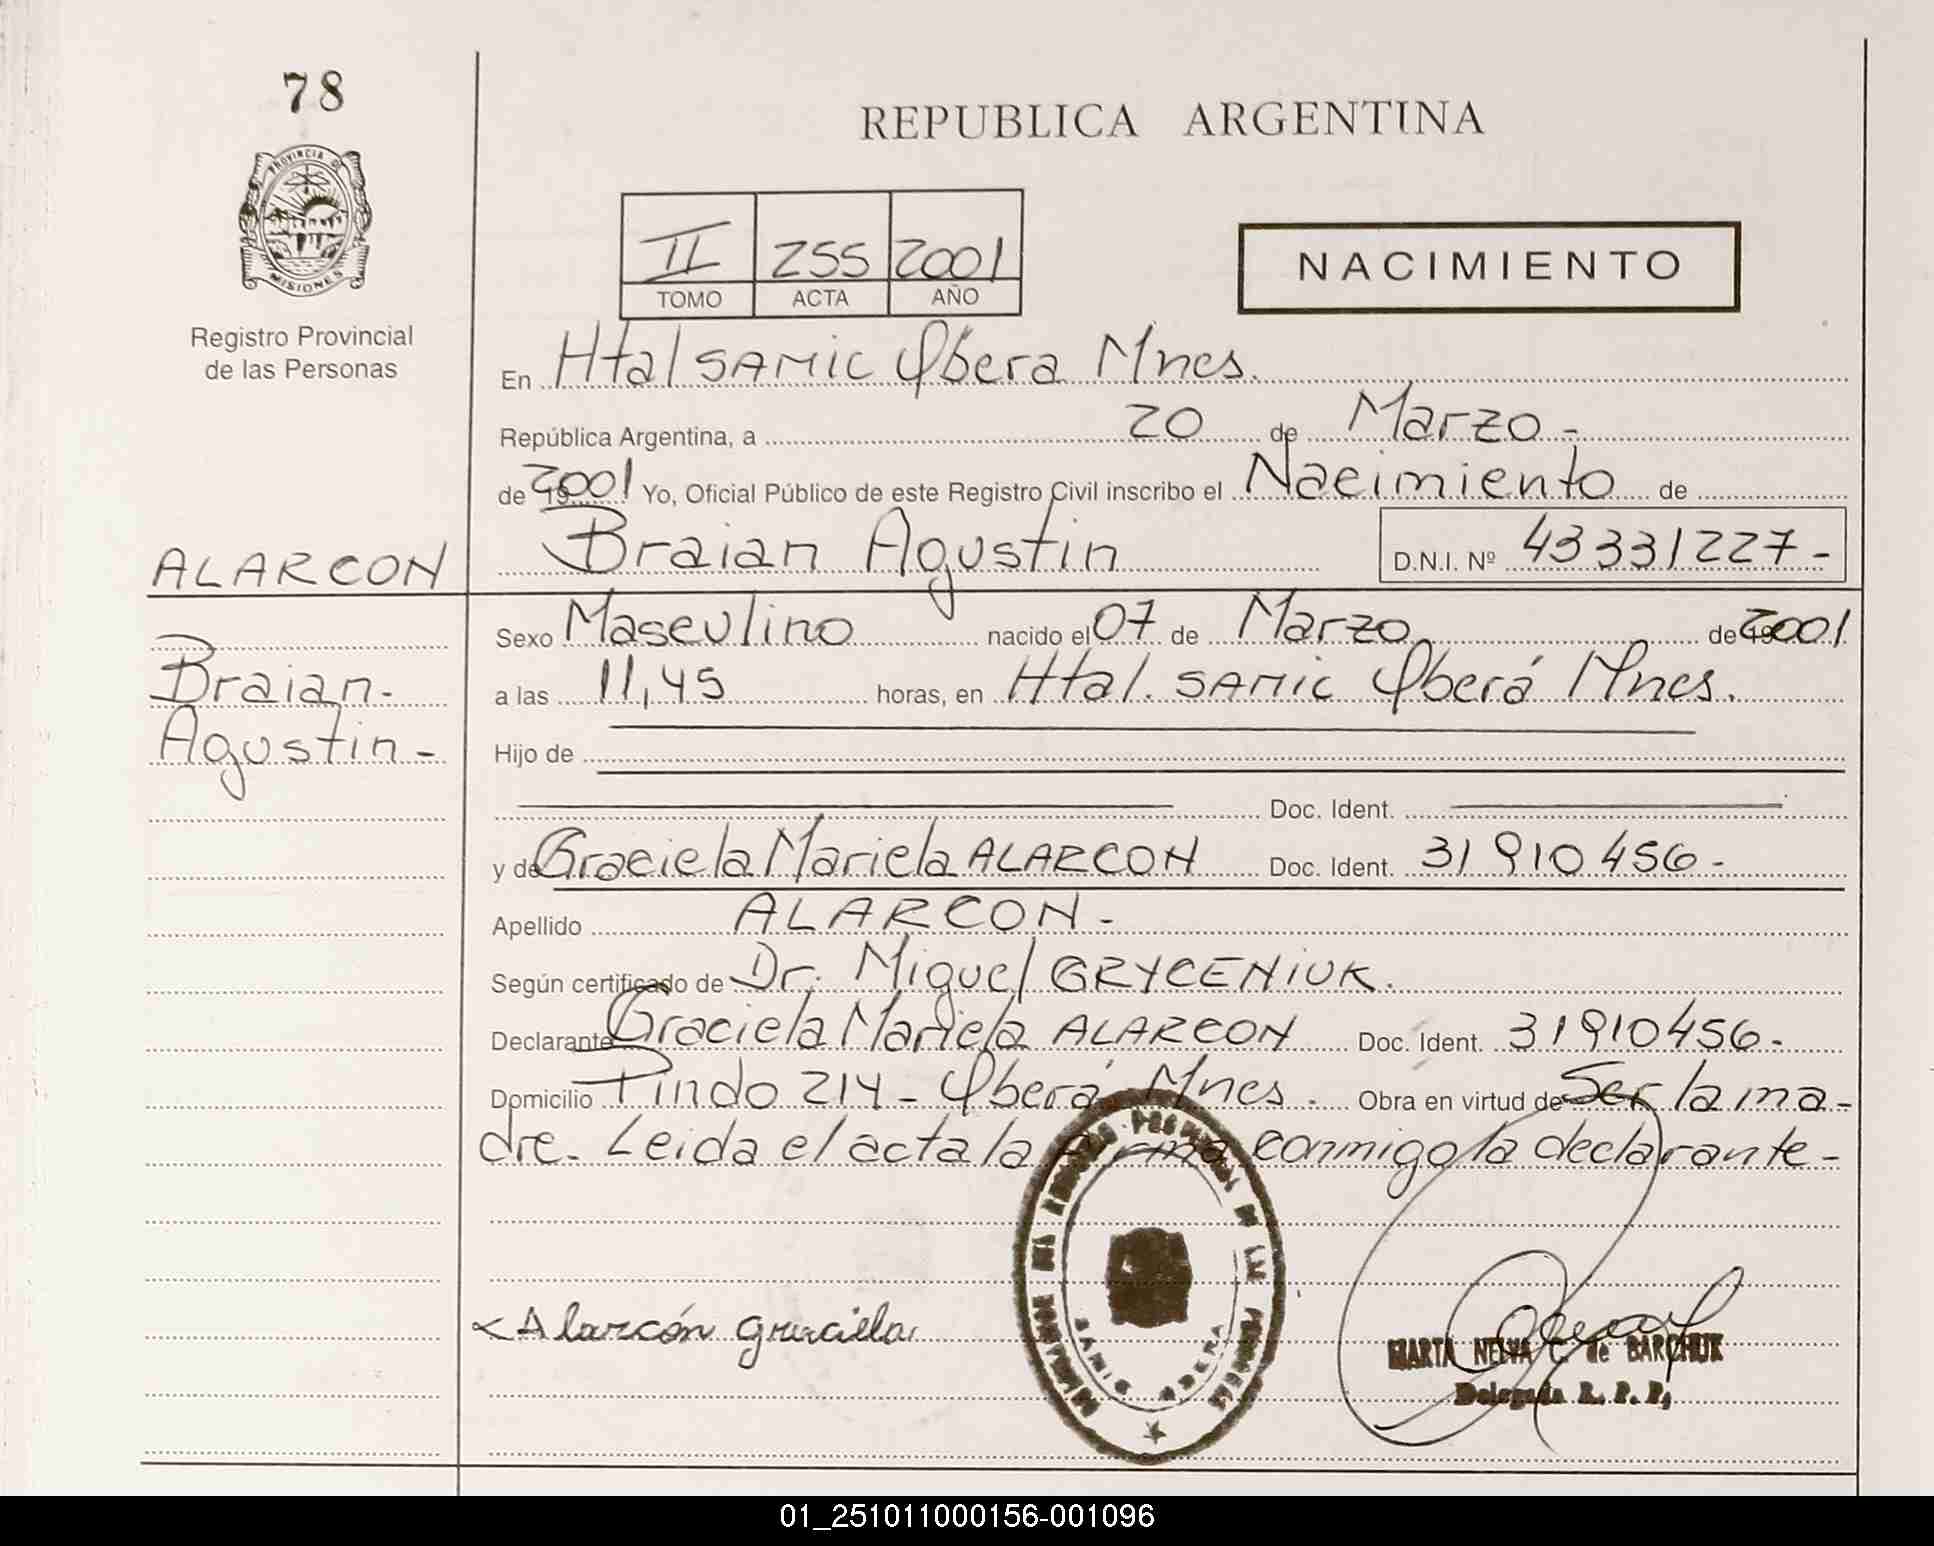 78
REPUBLICA ARGENTINA
PROVINCIA D
MISIONES
Registro Provincial
de las Personas
II 255 2001
TOMO ACTA AÑO
NACIMIENTO
En Htal SAMIC Obera Mnes.
República Argentina, a 20 de Marzo -
de 2001 Yo, Oficial Público de este Registro Civil inscribo el Nacimiento de
ALARCON
Braian Agustin D.N.I. Nº 43331227-
Braian-
Agustin-
Sexo Masculino nacido el 07 de Marzo de 2001
a las 11,45 horas, en Htal. SAMIC Oberá Mnes.
Hijo de
Doc. Ident.
y de Graciela Mariela ALARCON Doc. Ident. 31910456-
Apellido ALARCON-
Según certificado de Dr. Miguel GRYCENIUK.
Declarante Graciela Mariela ALARCON Doc. Ident. 31910456-
Domicilio Pindo 214- Oberá Mnes. Obra en virtud de Ser la ma-
dre. Leida el acta la firma conmigo la declarante-
Alarcón graciela
MARTA NELVA C. de BARCHUK
Delegada R. P. P.
01_251011000156-001096